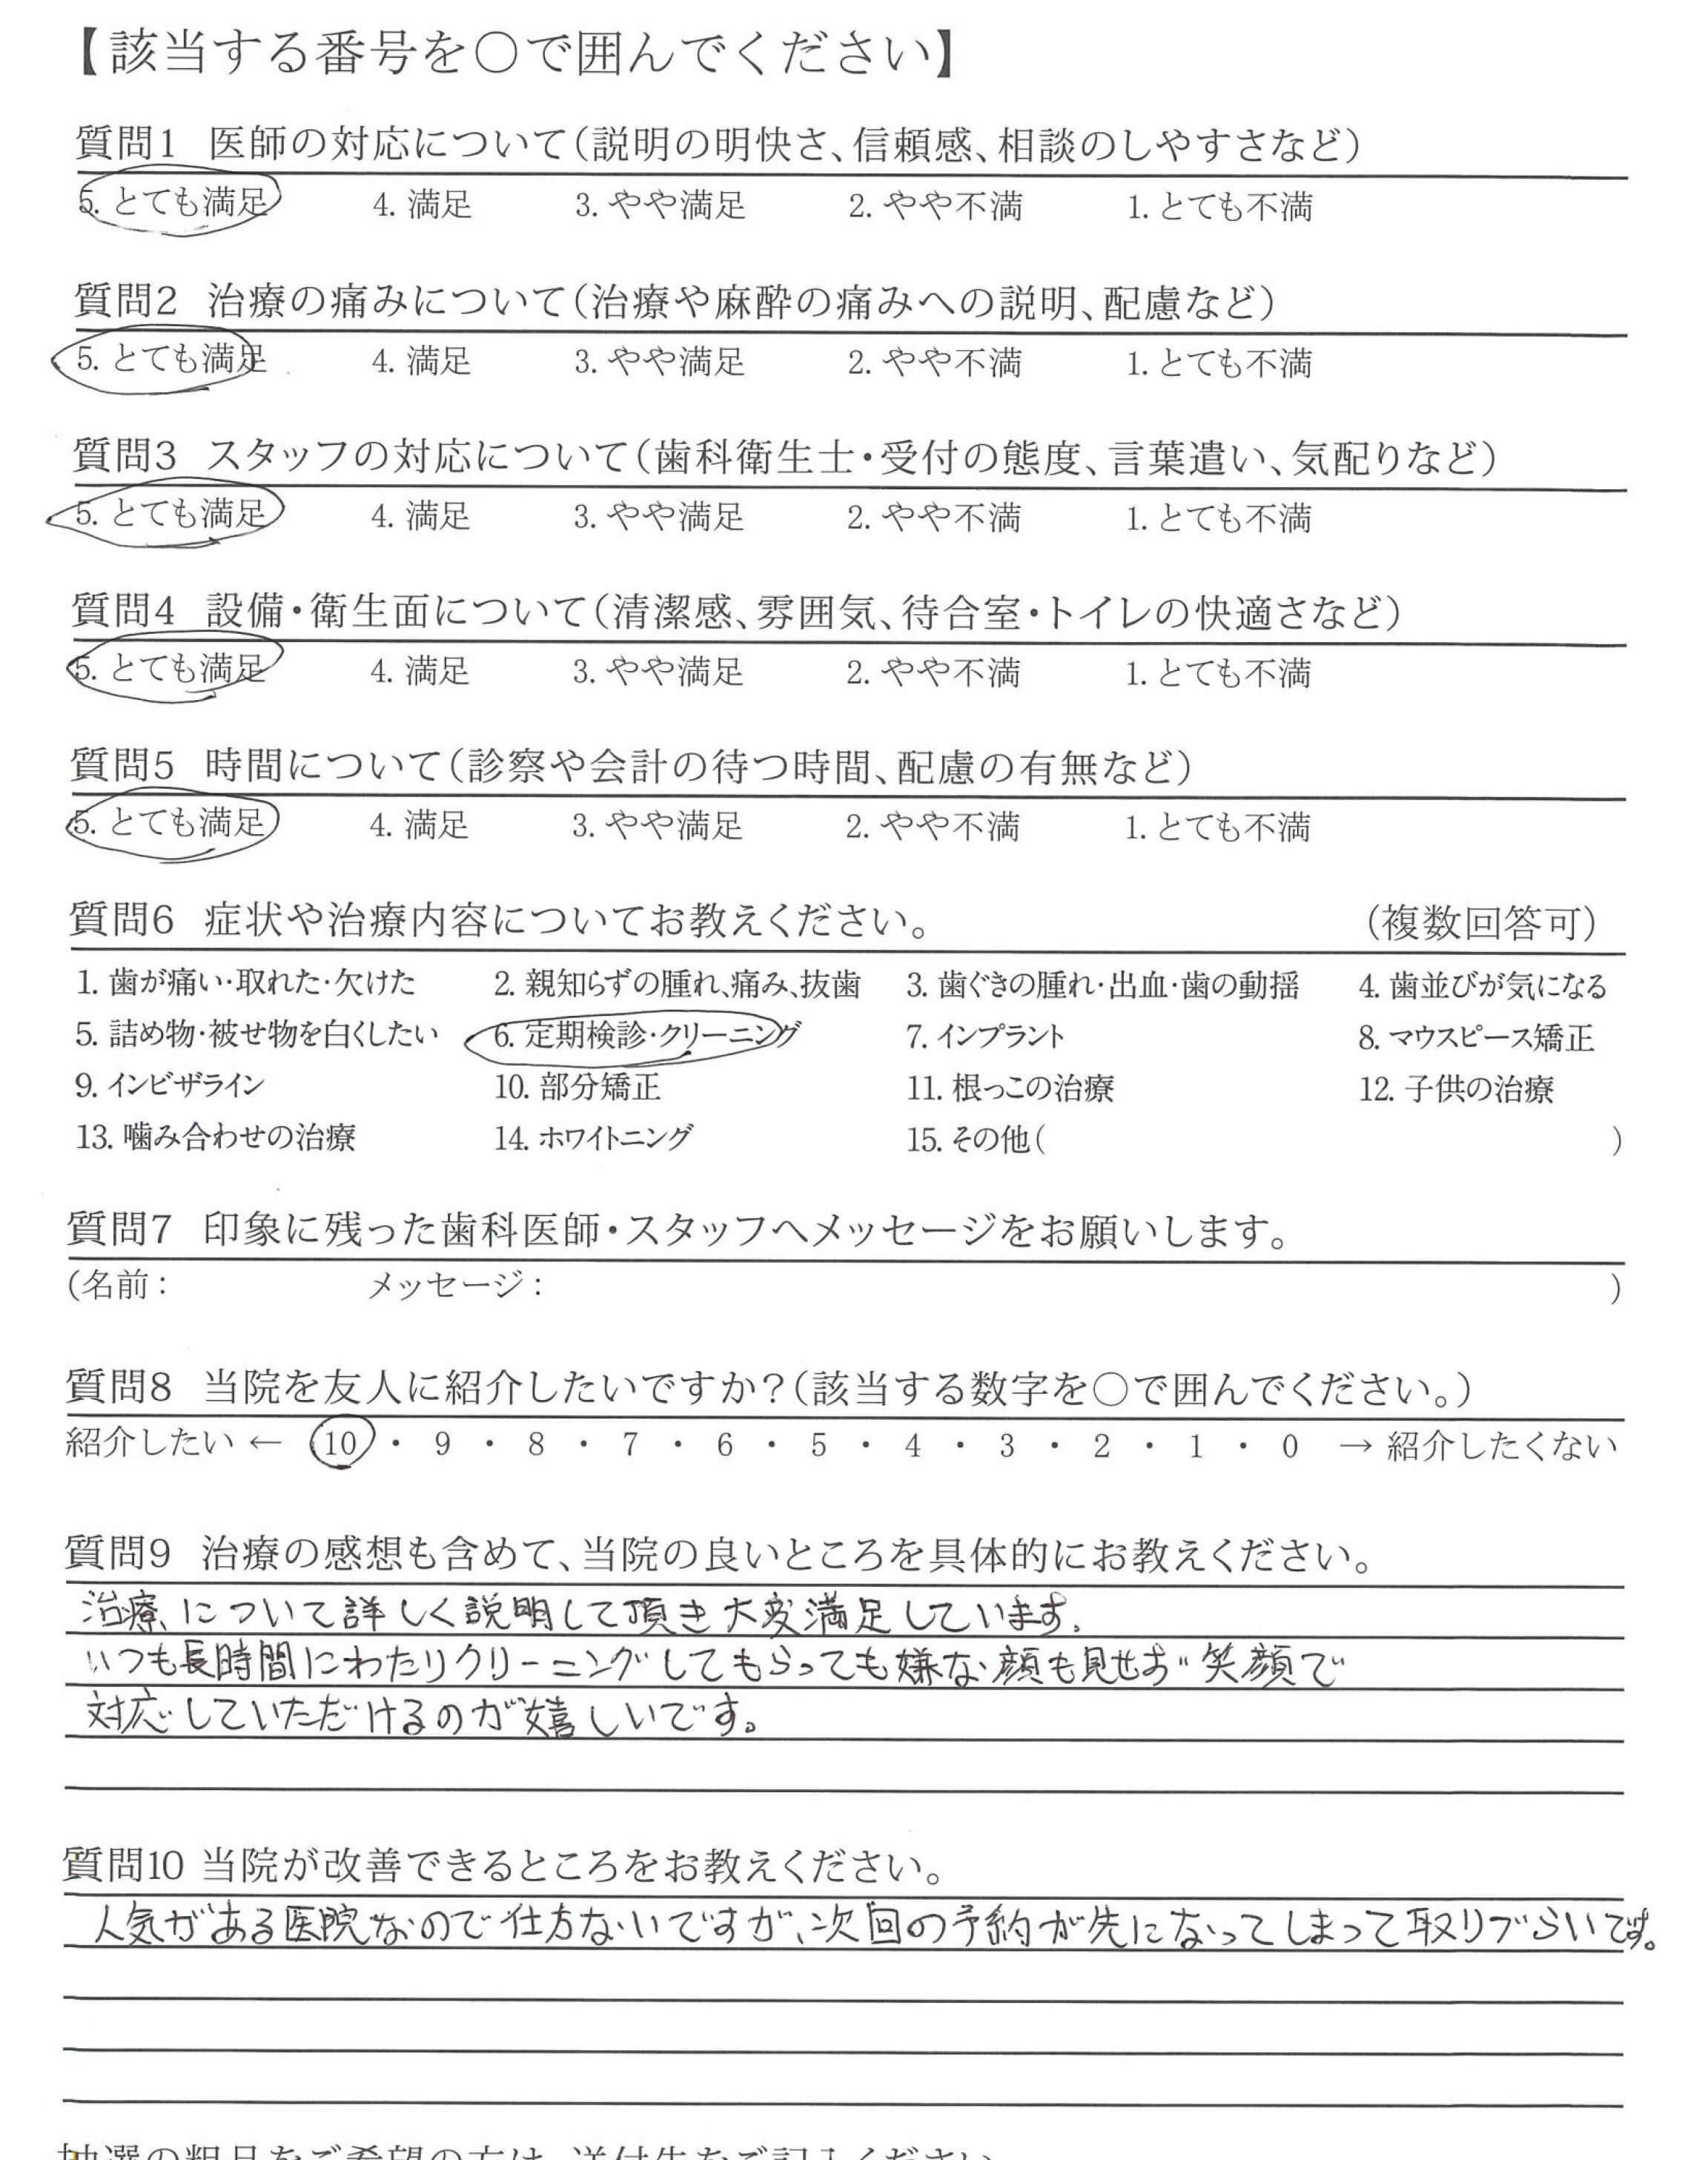 【該当する番号を○で囲んでください】
質問1 医師の対応について(説明の明快さ、信頼感、相談のしやすさなど)
5. とても満足 4. 満足 3. やや満足 2. やや不満 1. とても不満
質問2 治療の痛みについて(治療や麻酔の痛みへの説明、配慮など)
5. とても満足 4. 満足 3. やや満足 2. やや不満 1. とても不満
質問3 スタッフの対応について(歯科衛生士・受付の態度、言葉遣い、気配りなど)
5. とても満足 4. 満足 3. やや満足 2. やや不満 1. とても不満
質問4 設備・衛生面について(清潔感、雰囲気、待合室・トイレの快適さなど)
5. とても満足 4. 満足 3. やや満足 2. やや不満 1. とても不満
質問5 時間について(診察や会計の待つ時間、配慮の有無など)
5. とても満足 4. 満足 3. やや満足 2. やや不満 1. とても不満
質問6 症状や治療内容についてお教えください。 (複数回答可)
1. 歯が痛い・取れた・欠けた 2. 親知らずの腫れ、痛み、抜歯 3. 歯ぐきの腫れ・出血・歯の動揺 4. 歯並びが気になる
5. 詰め物・被せ物を白くしたい 6. 定期検診・クリーニング 7. インプラント 8. マウスピース矯正
9. インビザライン 10. 部分矯正 11. 根っこの治療 12. 子供の治療
13. 噛み合わせの治療 14. ホワイトニング 15. その他( )
質問7 印象に残った歯科医師・スタッフへメッセージをお願いします。
(名前: メッセージ: )
質問8 当院を友人に紹介したいですか?(該当する数字を○で囲んでください。)
紹介したい ← 10 ・ 9 ・ 8 ・ 7 ・ 6 ・ 5 ・ 4 ・ 3 ・ 2 ・ 1 ・ 0 → 紹介したくない
質問9 治療の感想も含めて、当院の良いところを具体的にお教えください。
治療について詳しく説明して頂き大変満足しています。
いつも長時間にわたりクリーニングしてもらっても嫌な顔も見せず笑顔で
対応していただけるのが嬉しいです。
質問10 当院が改善できるところをお教えください。
人気がある医院なので仕方ないですが、次回の予約が先になってしまって取りづらいです。
抽選の粗品をご希望の方は、送付先をご記入ください